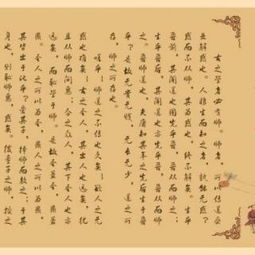 古之學者必有師。師者,所以傳道受
業解惑也。人非生而知之者,孰能無惑?
惑而不從師,其為惑也,終不解矣。生乎
吾前,其聞道也固先乎吾,吾從而師
之。生乎吾後,其聞道也亦先乎吾,吾從而師
之。吾師道也,夫庸知其年之先後生于吾
乎?是故無貴無賤,無長無少,道之所存,
師之所存也。
嗟乎!師道之不傳也久矣!欲人之無
惑也難矣!古之聖人,其出人也遠矣,猶
且從師而問焉。今之眾人,其下聖人也亦
遠矣,而恥學于師。是故聖益聖,愚益
愚。聖人之所以為聖,愚人之所以為愚,其
皆出于此乎?愛其子,擇師而教之;于其
身也,則恥師焉,惑矣。彼童子之師,授之